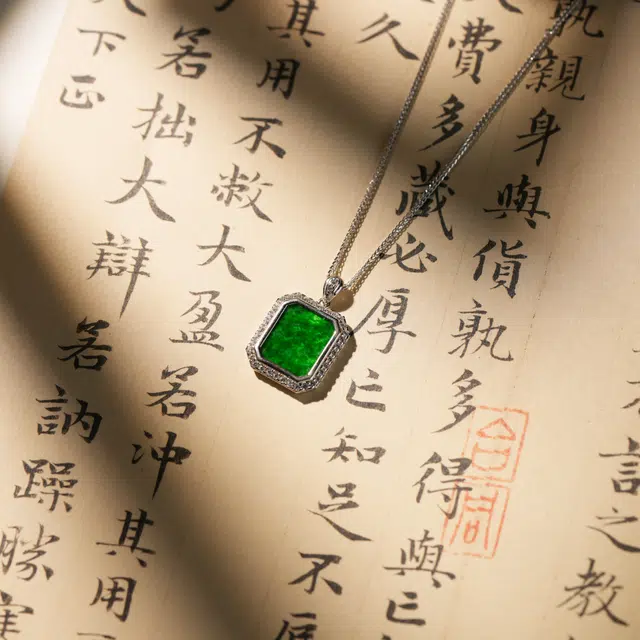 言之教
孰親身與貨孰多得與亡
費多藏必厚亡知足不
久
其用不敝大盈若沖其用
若拙大辯若訥躁勝寒
下正